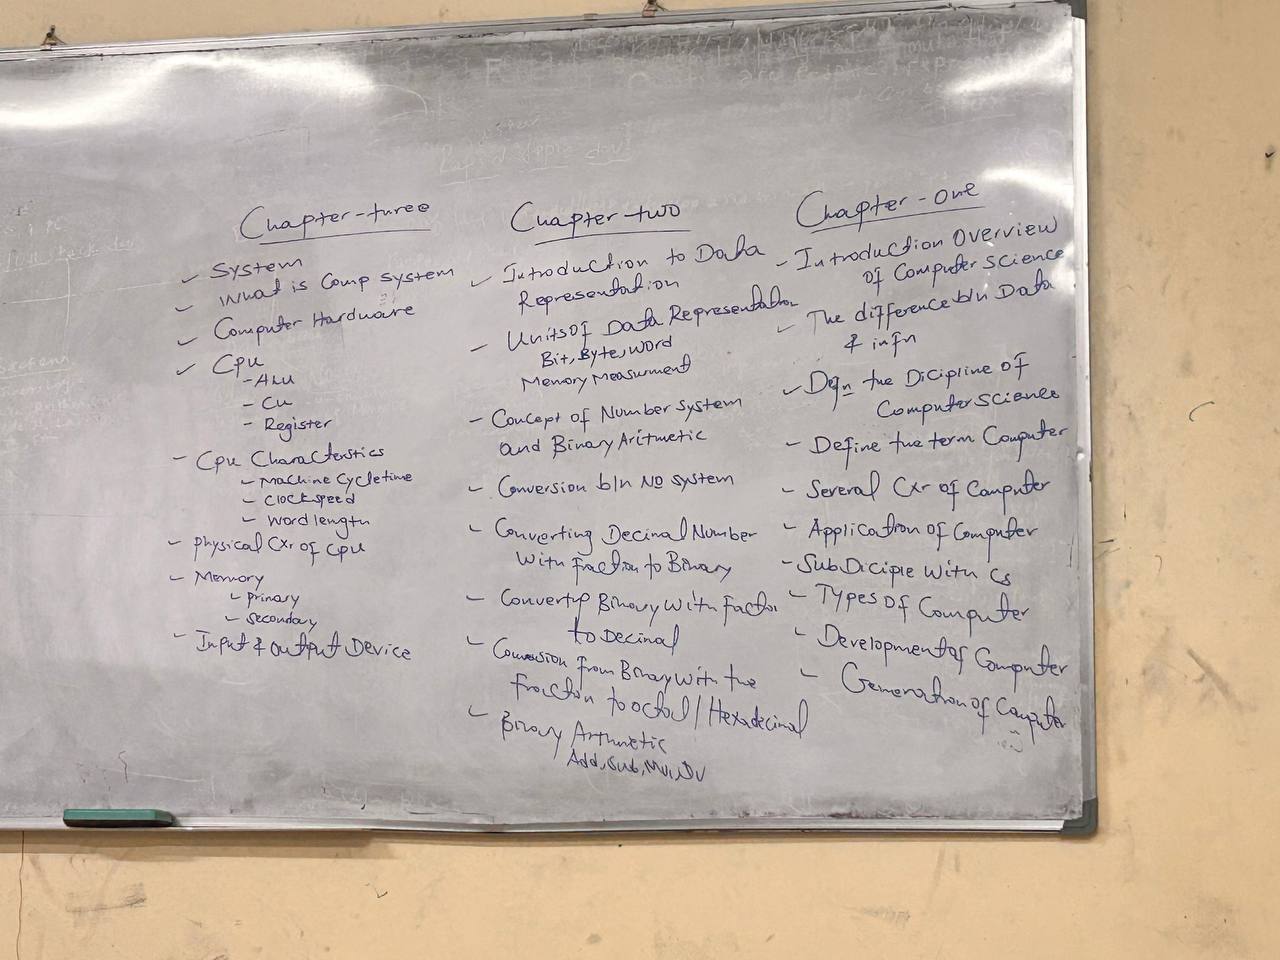 Chapter-three
System
What is Comp system
Computer Hardware
Cpu
-ALU
- Cu
- Register
- Cpu Characterstics
- Machine Cycletime
- Clock speed
- Word length
- physical Cxr of cpu
- Memory
- primary
- Secondary
- Input & output Device
Chapter-two
Introduction to Data
Representation
- Units of Data Representation
Bit, Byte, Word
Memory Measurment
- Concept of Number system
and Binary Aritmetic
- Conversion b/n No system
- Converting Decimal Number
With Fraction to Binary
- Converting Binary With Factor
to Decimal
- Conversion from Binary with the
fraction to octal / Hexadecimal
- Binary Arthmetic
Add, Sub, Mul, Dv
Chapter-one
- Introduction Overview
of Computer Science
The difference b/n Data
& infn
Defn the Dicipline of
Computer Science
- Define the term Computer
- Several Cxr of Computer
- Application of Computer
- Sub Diciple With Cs
- Types of Computer
- Development of Computer
- Generation of Computer